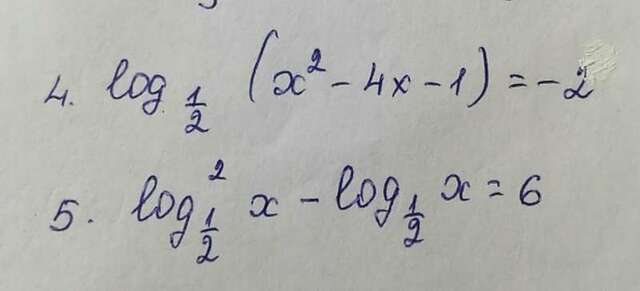 4. log_{1/2} (x² - 4x - 1) = -2
5. log²_{1/2} x - log_{1/2} x = 6